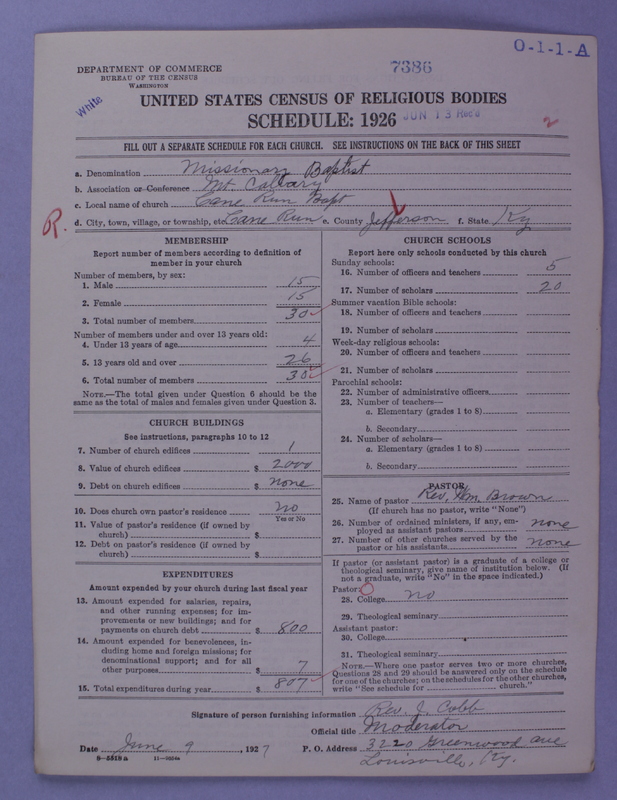 O-1-1-A
DEPARTMENT OF COMMERCE
BUREAU OF THE CENSUS
WASHINGTON
7386
White
UNITED STATES CENSUS OF RELIGIOUS BODIES
SCHEDULE: 1926
JUN 13
2
FILL OUT A SEPARATE SCHEDULE FOR EACH CHURCH. SEE INSTRUCTIONS ON THE BACK OF THIS SHEET
a. Denomination Missionary Baptist
b. Association or Conference Mt. Callary
c. Local name of church Cane Run Bapt
R. d. City, town, village, or township, etc. Cane Run e. County Jefferson f. State Ky
MEMBERSHIP
Report number of members according to definition of
member in your church
Number of members, by sex:
1. Male 15
2. Female 15
3. Total number of members 30
Number of members under and over 13 years old:
4. Under 13 years of age 4
5. 13 years old and over 26
6. Total number of members 30
NOTE.—The total given under Question 6 should be the
same as the total of males and females given under Question 3.
CHURCH BUILDINGS
See instructions, paragraphs 10 to 12
7. Number of church edifices 1
8. Value of church edifices $ 2000
9. Debt on church edifices $ none
10. Does church own pastor's residence? no
Yes or No
11. Value of pastor's residence (if owned by
church) $
12. Debt on pastor's residence (if owned by
church) $
EXPENDITURES
Amount expended by your church during last fiscal year
13. Amount expended for salaries, repairs,
and other running expenses; for im-
provements or new buildings; and for
payments on church debt $ 800
14. Amount expended for benevolences, in-
cluding home and foreign missions; for
denominational support; and for all
other purposes $ 7
15. Total expenditures during year $ 807
CHURCH SCHOOLS
Report here only schools conducted by this church
Sunday schools:
16. Number of officers and teachers 5
17. Number of scholars 20
Summer vacation Bible schools:
18. Number of officers and teachers
19. Number of scholars
Week-day religious schools:
20. Number of officers and teachers
21. Number of scholars
Parochial schools:
22. Number of administrative officers
23. Number of teachers—
a. Elementary (grades 1 to 8)
b. Secondary
24. Number of scholars—
a. Elementary (grades 1 to 8)
b. Secondary
PASTOR
25. Name of pastor Rev. Wm. Brown
(If church has no pastor, write "None")
26. Number of ordained ministers, if any, em-
ployed as assistant pastors none
27. Number of other churches served by the
pastor or his assistants none
If pastor (or assistant pastor) is a graduate of a college or
theological seminary, give name of institution below. (If
not a graduate, write "No" in the space indicated.)
Pastor:
28. College no
29. Theological seminary
Assistant pastor:
30. College
31. Theological seminary
NOTE.—Where one pastor serves two or more churches,
Questions 28 and 29 should be answered only on the schedule
for one of the churches; on the schedules for the other churches,
write "See schedule for church."
Signature of person furnishing information Rev. J. Cobb
Official title Moderator
Date June 9, 1927 P. O. Address 3220 Greenwood ave
Louisville, Ky.
8-5518a